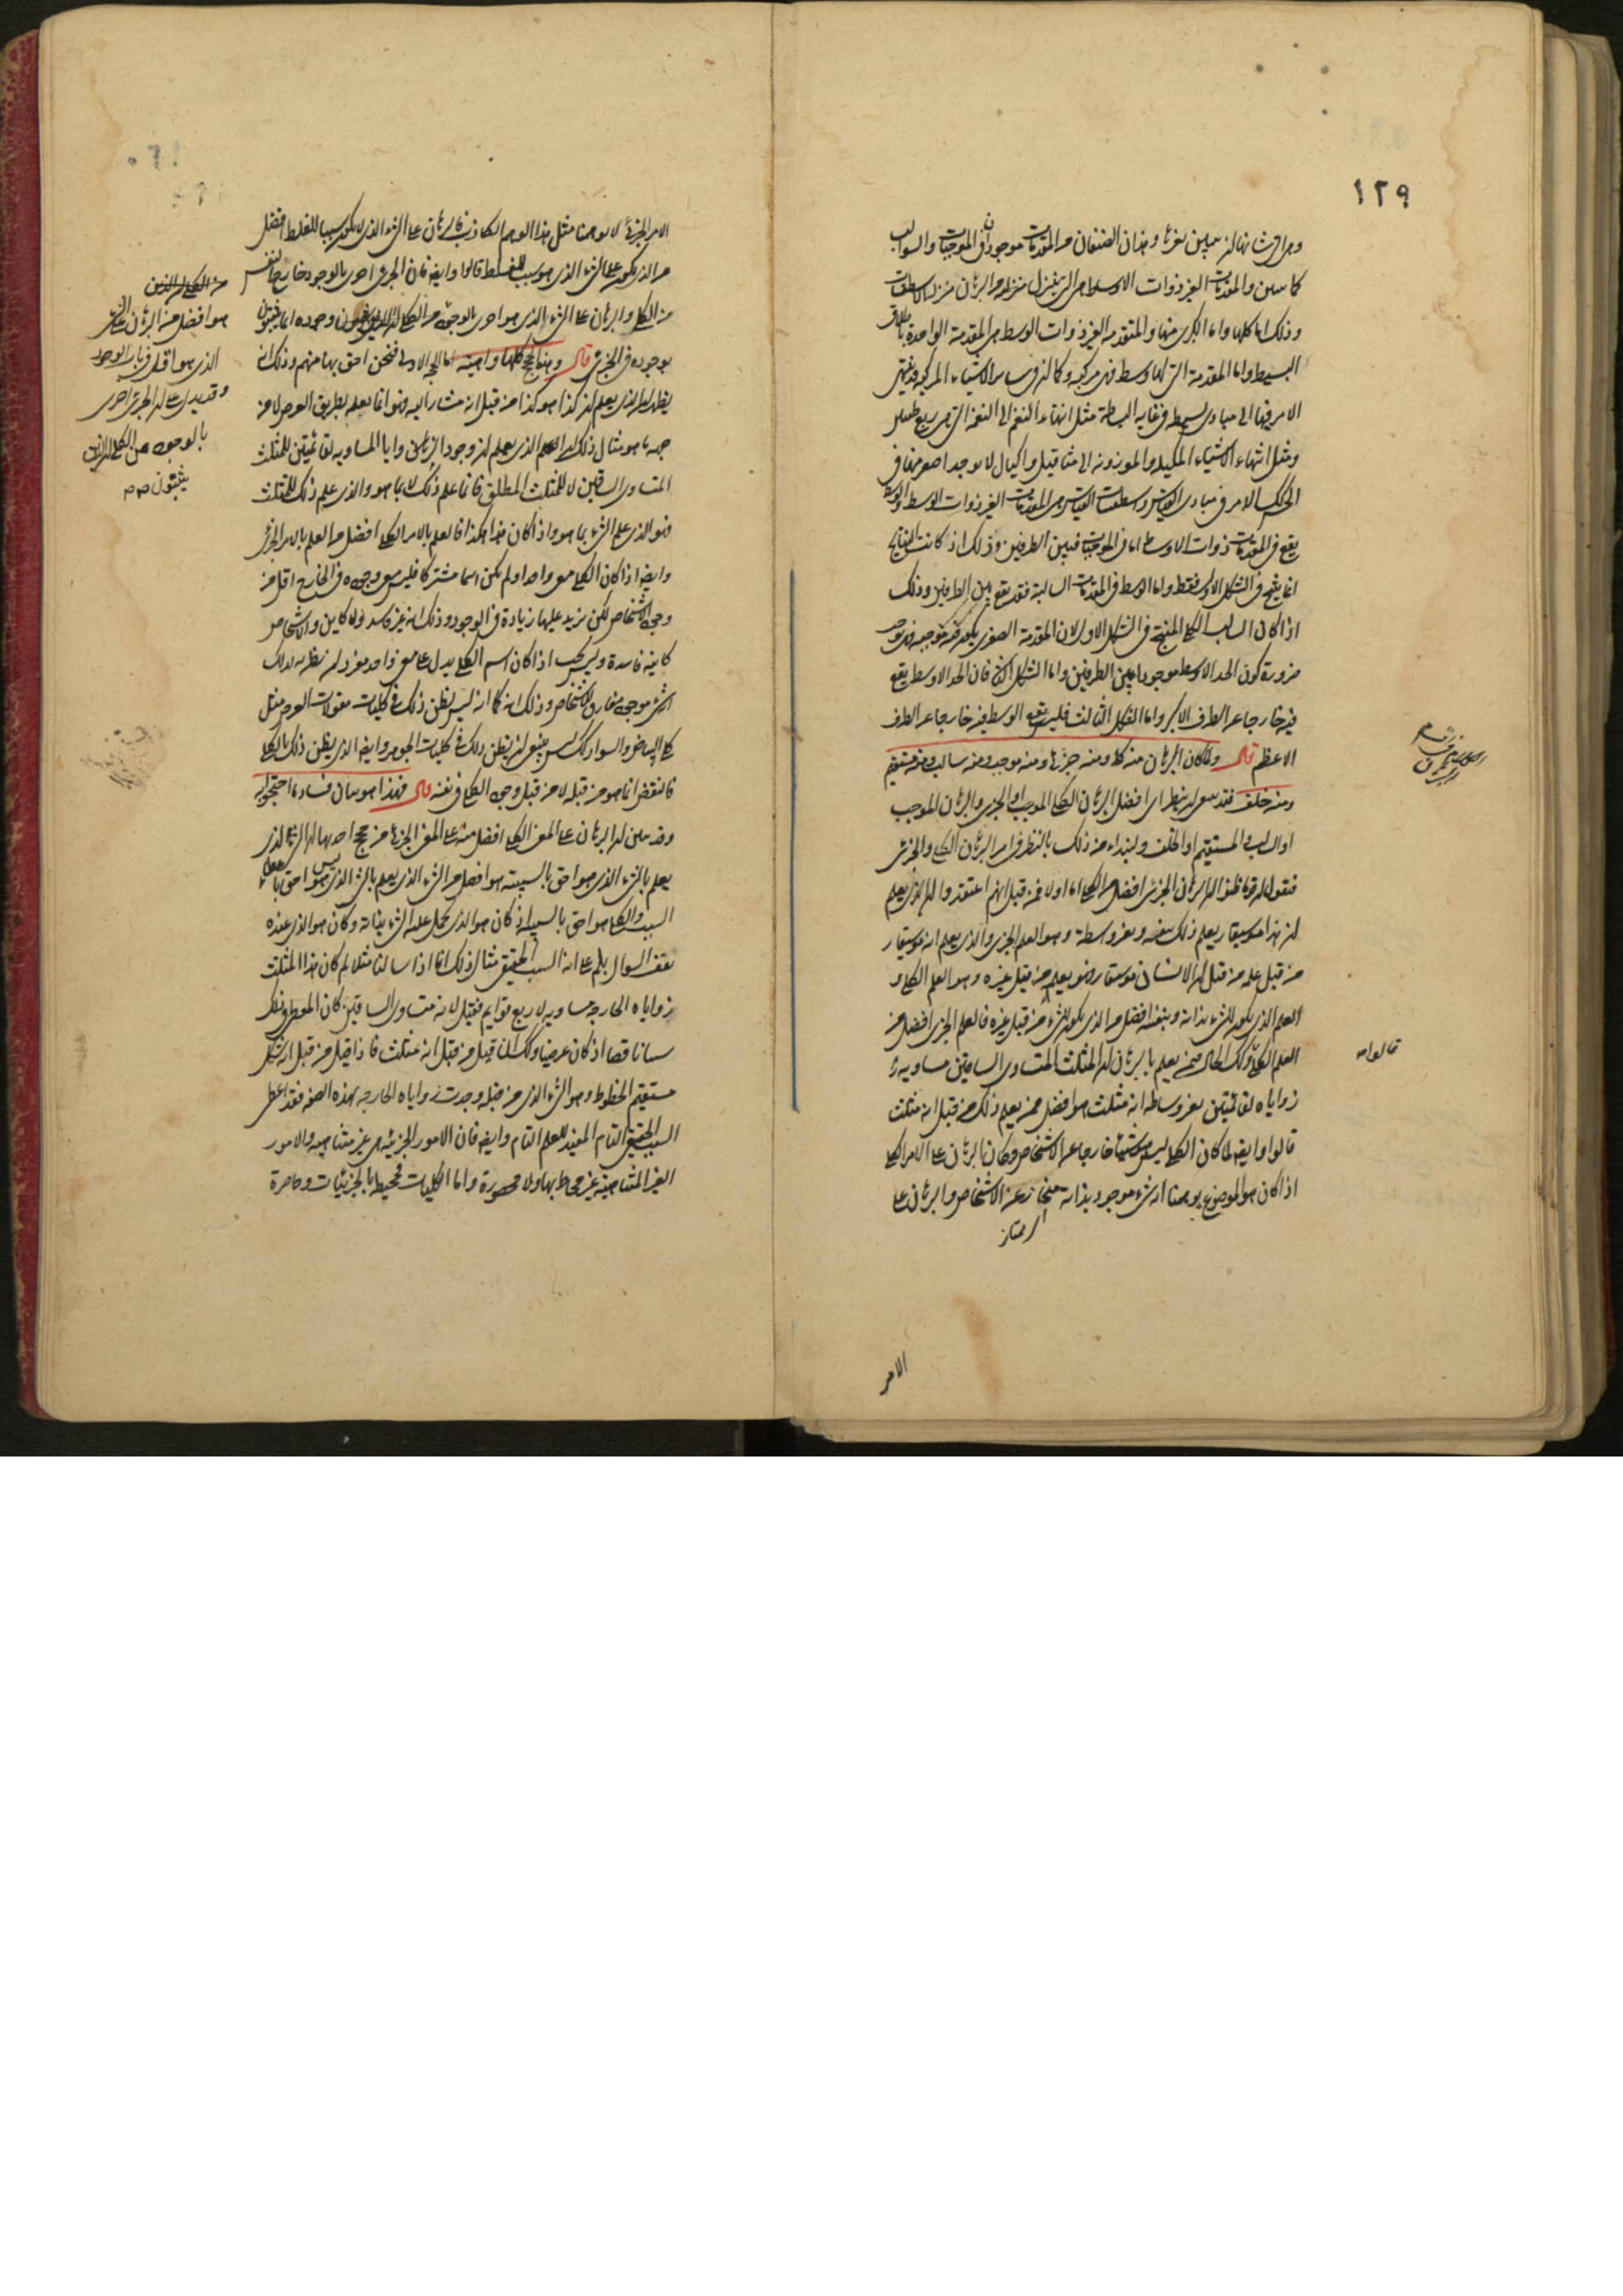 ١٢٩
وهى التى شانها ان تبين بغيرها وهذان الصنفان من المقدمات موجودان فى الموجبات والسوالب
كما تبين والمقدمات الغير ذوات الاوساط هى التى تنزل منزلة من البرهان منزلة الاسطقسات
وذلك اما كلها واما الكبرى منها والمتقدمة الغير ذوات الوسط هى المقدمة الواحدة باطلاق
البسيطة واما المقدمة التى لها وسط فهى مركبة وكما ان فى سائر الاشياء المركبة قد ينتهى
الامر فيها الى مبادى بسيطة فى غاية البساطة مثل انتهاء النغم الى النغمة التى هى ربع طنين
ومثل انتهاء الاشياء المكيلة والموزونة الى مثاقيل واكيال لا يوجد اصغر منها فى
كذلك الامر فى مبادى القياس واسطقسات القياس هى المقدمات الغير ذوات الوسط والوسط
يقع فى المقدمات ذوات الاوساط اما فى الموجبات فبين الطرفين وذلك اذ كانت النتايج
انما ينتج فى الشكل الاول فقط واما الوسط فى المقدمات السالبة فقد يقع بين الطرفين وذلك
اذا كان السالب الكلى المنتج فى الشكل الاول لان المقدمة الصغرى يكون فيه موجبة فهى توجب
ضرورة كون الحد الاوسط موجودا بين الطرفين واما الشكل الثانى فان الحد الاوسط يقع
فيه خارجا عن الطرف الاكبر واما الشكل الثالث فليس يقع الوسط فيه خارجا عن الطرف
الاعظم قال ولما كان البرهان منه كلى ومنه جزئى ومنه موجب ومنه سالب ومنه مستقيم
ومنه خلف فقد ينبغى ان ينظر اى افضل البرهان الكلى الموجب او الجزئى والبرهان الموجب
او السالب والمستقيم او الخلف ولنبداء من ذلك بالنظر فى امر البرهان الكلى والجزئى
فنقول ان قوما ظنوا ان البرهان الجزئى افضل من الكلى اما اولا فمن قبل انهم اعتقدوا ان الذى يعلم
ان هذا موسيقار يعلم ذلك بنفسه وبغير واسطة وهو العلم الجزئى والذى يعلم انه موسيقار
من قبل علمه من قبل ان الانسان موسيقار فهو يعلمه من قبل غيره وهو العلم الكلى و
العلم الذى يكون للشىء بذاته وبنفسه افضل من الذى يكون للشىء من قبل غيره فالعلم الجزئى افضل من
العلم الكلى وكذلك الحال فيمن يعلم بالبرهان ان المثلث المتساوى الساقين مساوية
زواياه لقائمتين بغير وساطة انه مثلث هو افضل ممن يعلم ذلك من قبل انه مثلث
قالوا وايضا لما كان الكلى ليس هو شيئا خارجا عن الاشخاص وكان البرهان على الامر الكلى
اذا كان هو الموضوع يوهمنا انه شىء موجود بذاته منحاز عن الاشخاص والبرهان على
اى ممتاز
الامر
قالوا
الامر الجزئى لا يوهمنا مثل هذا الوهم الكاذب فالبرهان على الشىء الذى لا يكون سببا للغلط افضل
من الذى يكون على الشىء الذى هو سبب للغلط قالوا وايضا فان الجزئى احرى بالوجود خارج النفس
من الكلى والبرهان على الشىء الذى هو احرى بالوجود من الكلى
بوجوده فى الجزئى قال وهذه الحجج كلها واهية اما الحجة الاولى فنحن احق بها منهم وذلك انه
يظهر ان الذى يعلم ان كذا هو كذا من قبل انه مشار اليه فهو انما يعلمه بطريق العرض لا من
جهة ما هو مثال ذلك ان العلم الذى يعلم ان وجود الزوايا المساوية لقائمتين للمثلث
المتساوى الساقين لا للمثلث المطلق فانما علم ذلك لا بما هو والذى علم ذلك للمثلث
فهو الذى علم الشىء بما هو واذا كان هذا هكذا فالعلم بالامر الكلى افضل من العلم بالامر الجزئى
وايضا اذا كان الكلى معنى واحدا ولم يكن اسما مشتركا فليس هو وجوده فى الخارج اقل من
وجود الاشخاص لكن يزيد عليها زيادة فى الوجود وذلك انه غير فاسد ولا كاين والاشخاص
كاينة فاسدة وليس يجب اذا كان اسم الكلى يدل على معنى واحد مفرد ان يظن به لذلك
انه شىء موجود مفارق للاشخاص وذلك انه كما انه ليس يظن ذلك فى كليات مقولات العرض مثل
كلى البياض والسواد كذلك ليس ينبغى ان يظن ذلك فى كليات الجوهر وايضا الذى يظن ذلك بالكلى
فالنقض انما هو من قبله لا من قبل وجود الكلى فى نفسه قال فهذا هو بيان فساد ما احتجوا به
وقد يبين ان البرهان على المعنى الكلى افضل منه على المعنى الجزئى من حجج احدها ان الشىء الذى
يعلم بالشىء الذى هو احق بالسببية هو افضل من الشىء الذى يعلم بالشىء الذى ليس هو احق
السبب والكلى هو احق بالسببية اذ كان هو الذى يحمل على الشىء بذاته وكان هو الذى عنده
يقف السوال بلم على انه السبب الحقيقى مثال ذلك انا اذا سالنا مثلا لم كان هذا المثلث
زواياه الخارجة مساوية لاربع قوايم فقيل لانه متساوى الساقين كان المعطى فى ذلك
سببا ناقصا اذ كان عرضيا وكذلك ان قيل من قبل انه مثلث فاذا قيل من قبل انه شكل
مستقيم الخطوط وهو الشىء الذى من قبله وجدت زواياه الخارجة بهذه الصفة فقد اعطى
السبب الحقيقى التام المفيد للعلم التام وايضا فان الامور الجزئية هى غير متناهية والامور
الغير المتناهية غير محاط بها ولا محصورة واما الكليات فمحيطة بالجزئيات وحاصرة
هو افضل من البرهان على الشىء
الذى هو اقل فى باب الوجود
وقد يدل على ان الجزئى احرى
بالوجود من الكلى ان الذين
يثبتون